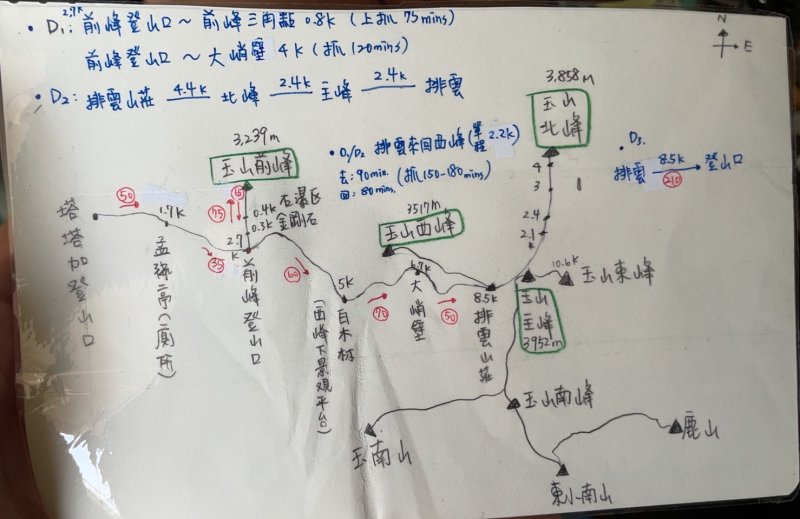 2.7K
• D1: 前峰登山口～前峰三角點 0.8K (上抓 75mins)
前峰登山口～大峭壁 4K (抓120mins)
• D2: 排雲山莊 4.4K 北峰 2.4K 主峰 2.4K 排雲
N
E
3,858m
玉山北峰
• D1/D2 排雲來回西峰(單程 2.2K)
去: 90min. (抓150-180mins)
回: 80mins.
• D3.
排雲 8.5K 登山口
210
3,239m
玉山前峰
75
0.4K 石瀑區
0.3K 金剛石
2.7K
前峰登山口
50
塔塔加登山口
1.7K
孟祿亭(廁所)
35
60
5K
白木林
(西峰下景觀平台)
70
3517m
玉山西峰
6.7K
大峭壁
50
8.5K
排雲山莊
4
3
2.4
2.1K
玉山主峰
3952m
10.6K
玉山東峰
玉山南峰
玉南山
東小南山
鹿山